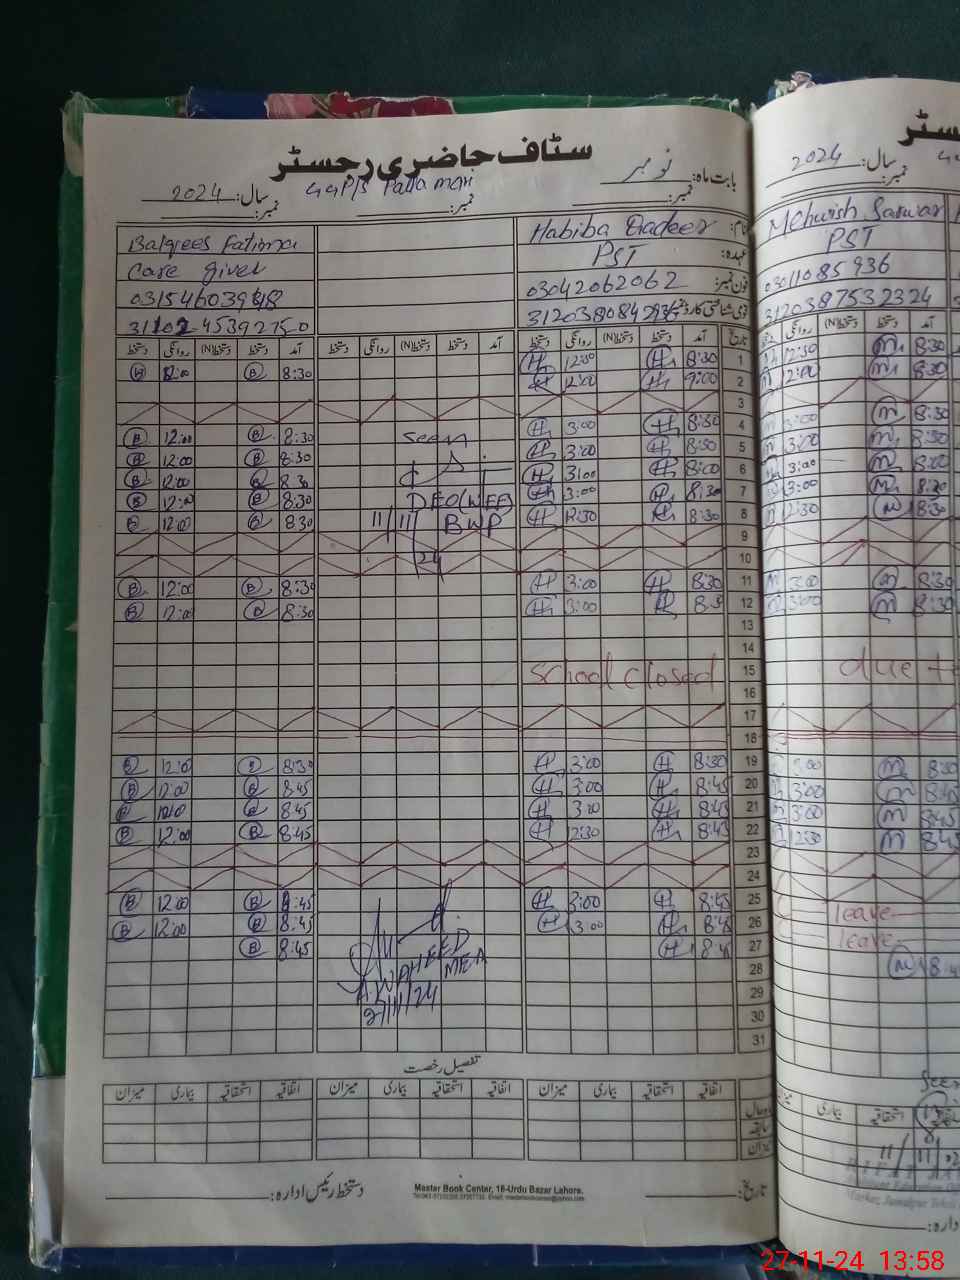 سٹاف حاضری رجسٹر
بابت ماہ: نومبر سال: 2024
نمبر: نمبر: GGP/S نمبر:
نام: Habiba Qadeer Balqees Fatima
عہدہ: PST Care giver
فون نمبر: 03042062062
قومی شناختی کارڈ
تاریخ آمد دستخط (N)دستخط روانگی دستخط آمد دستخط (N)دستخط روانگی دستخط آمد دستخط (N)دستخط روانگی دستخط
1 8:30 H 12:30 H 8:30 B 12:00 B
2 9:00 H 12:00 H
3
4 8:30 H 3:00 H 8:30 B 12:00 B
seen
5 8:30 H 3:00 H 8:30 B 12:00 B
6 8:00 H 3:00 H 8:30 B 12:00 B
7 8:30 H 3:00 H 8:30 B 12:00 B
DEO(WEE)
8 8:30 H 12:30 H 8:30 B 12:00 B
BWP
11/11/24
9
10
11 8:30 H 3:00 H 8:30 B 12:00 B
12 8:3 H 3:00 H 8:30 B 12:00 B
13
14
15 School closed
16
17
18
19 8:30 H 3:00 H 8:30 B 12:00 B
20 8:45 H 3:00 H 8:45 B 12:00 B
21 8:45 H 3:00 H 8:45 B 12:0 B
22 8:45 H 12:30 H 8:45 B 12:00 B
23
24
25 8:45 H 3:00 H 8:45 B 12:00 B
26 8:45 H 3:00 H 8:45 B 12:00 B
27 8:45 H 8:45 B
A.WAHEED
MEA
27/11/24
28
29
30
31
تفصیل رخصت
اتفاقیہ استحقاقیہ بیماری میزان اتفاقیہ استحقاقیہ بیماری میزان اتفاقیہ استحقاقیہ بیماری میزان
سابقہ
میزان
تاریخ: دستخط رئیس ادارہ:
Master Book Center, 16-Urdu Bazar Lahore.
سٹر
سال: 2024
نمبر:
Mehwish Sarwar
PST
03011085936
3120387532324
آمد دستخط (N)دستخط روانگی
8:30 m 12:30
8:30 m 12:00
8:30 m 3:00
8:30 m 3:00
8:00 m 3:00
8:30 m 3:00
8:30 m 12:30
8:30 m 3:00
8:30 m 3:00
due t
8:30 m 3:00
8:45 m 3:00
8:45 m 3:00
8:45 m 12:30
leave
leave
m 8:4
Seen
استحقاقیہ بیماری میزان
11/11/2
ادارہ:
27-11-24 13:58